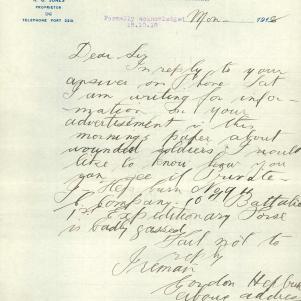 H. G. JONES
PROPRIETOR
TELEPHONE PORT 226
Formally acknowledged
15.10.18
Mon 191
Dear Sir
In reply to your
answer on phone Sat
I am writing for infor-
mation in your
advertisement in this
mornings paper about
wounded soldiers I would
like to know how you
can see if Private
Hepburn
B Company 10 Battalion
1st Expeditionary Force
is badly gassed
Fail not to
reply
I remain
Gordon Hepburn
above address